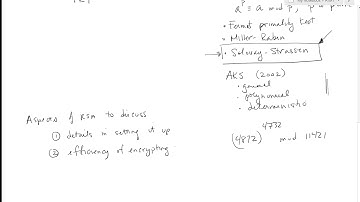 a^p ≡ a mod p,
• Fermat primality test
• Miller-Rabin
→ • Solovay-Strassen
AKS (2002)
• general
• polynomial
• deterministic
(4872)^4732 mod 11421
Aspects of RSA to discuss
① details in setting it up
② efficiency of encrypting